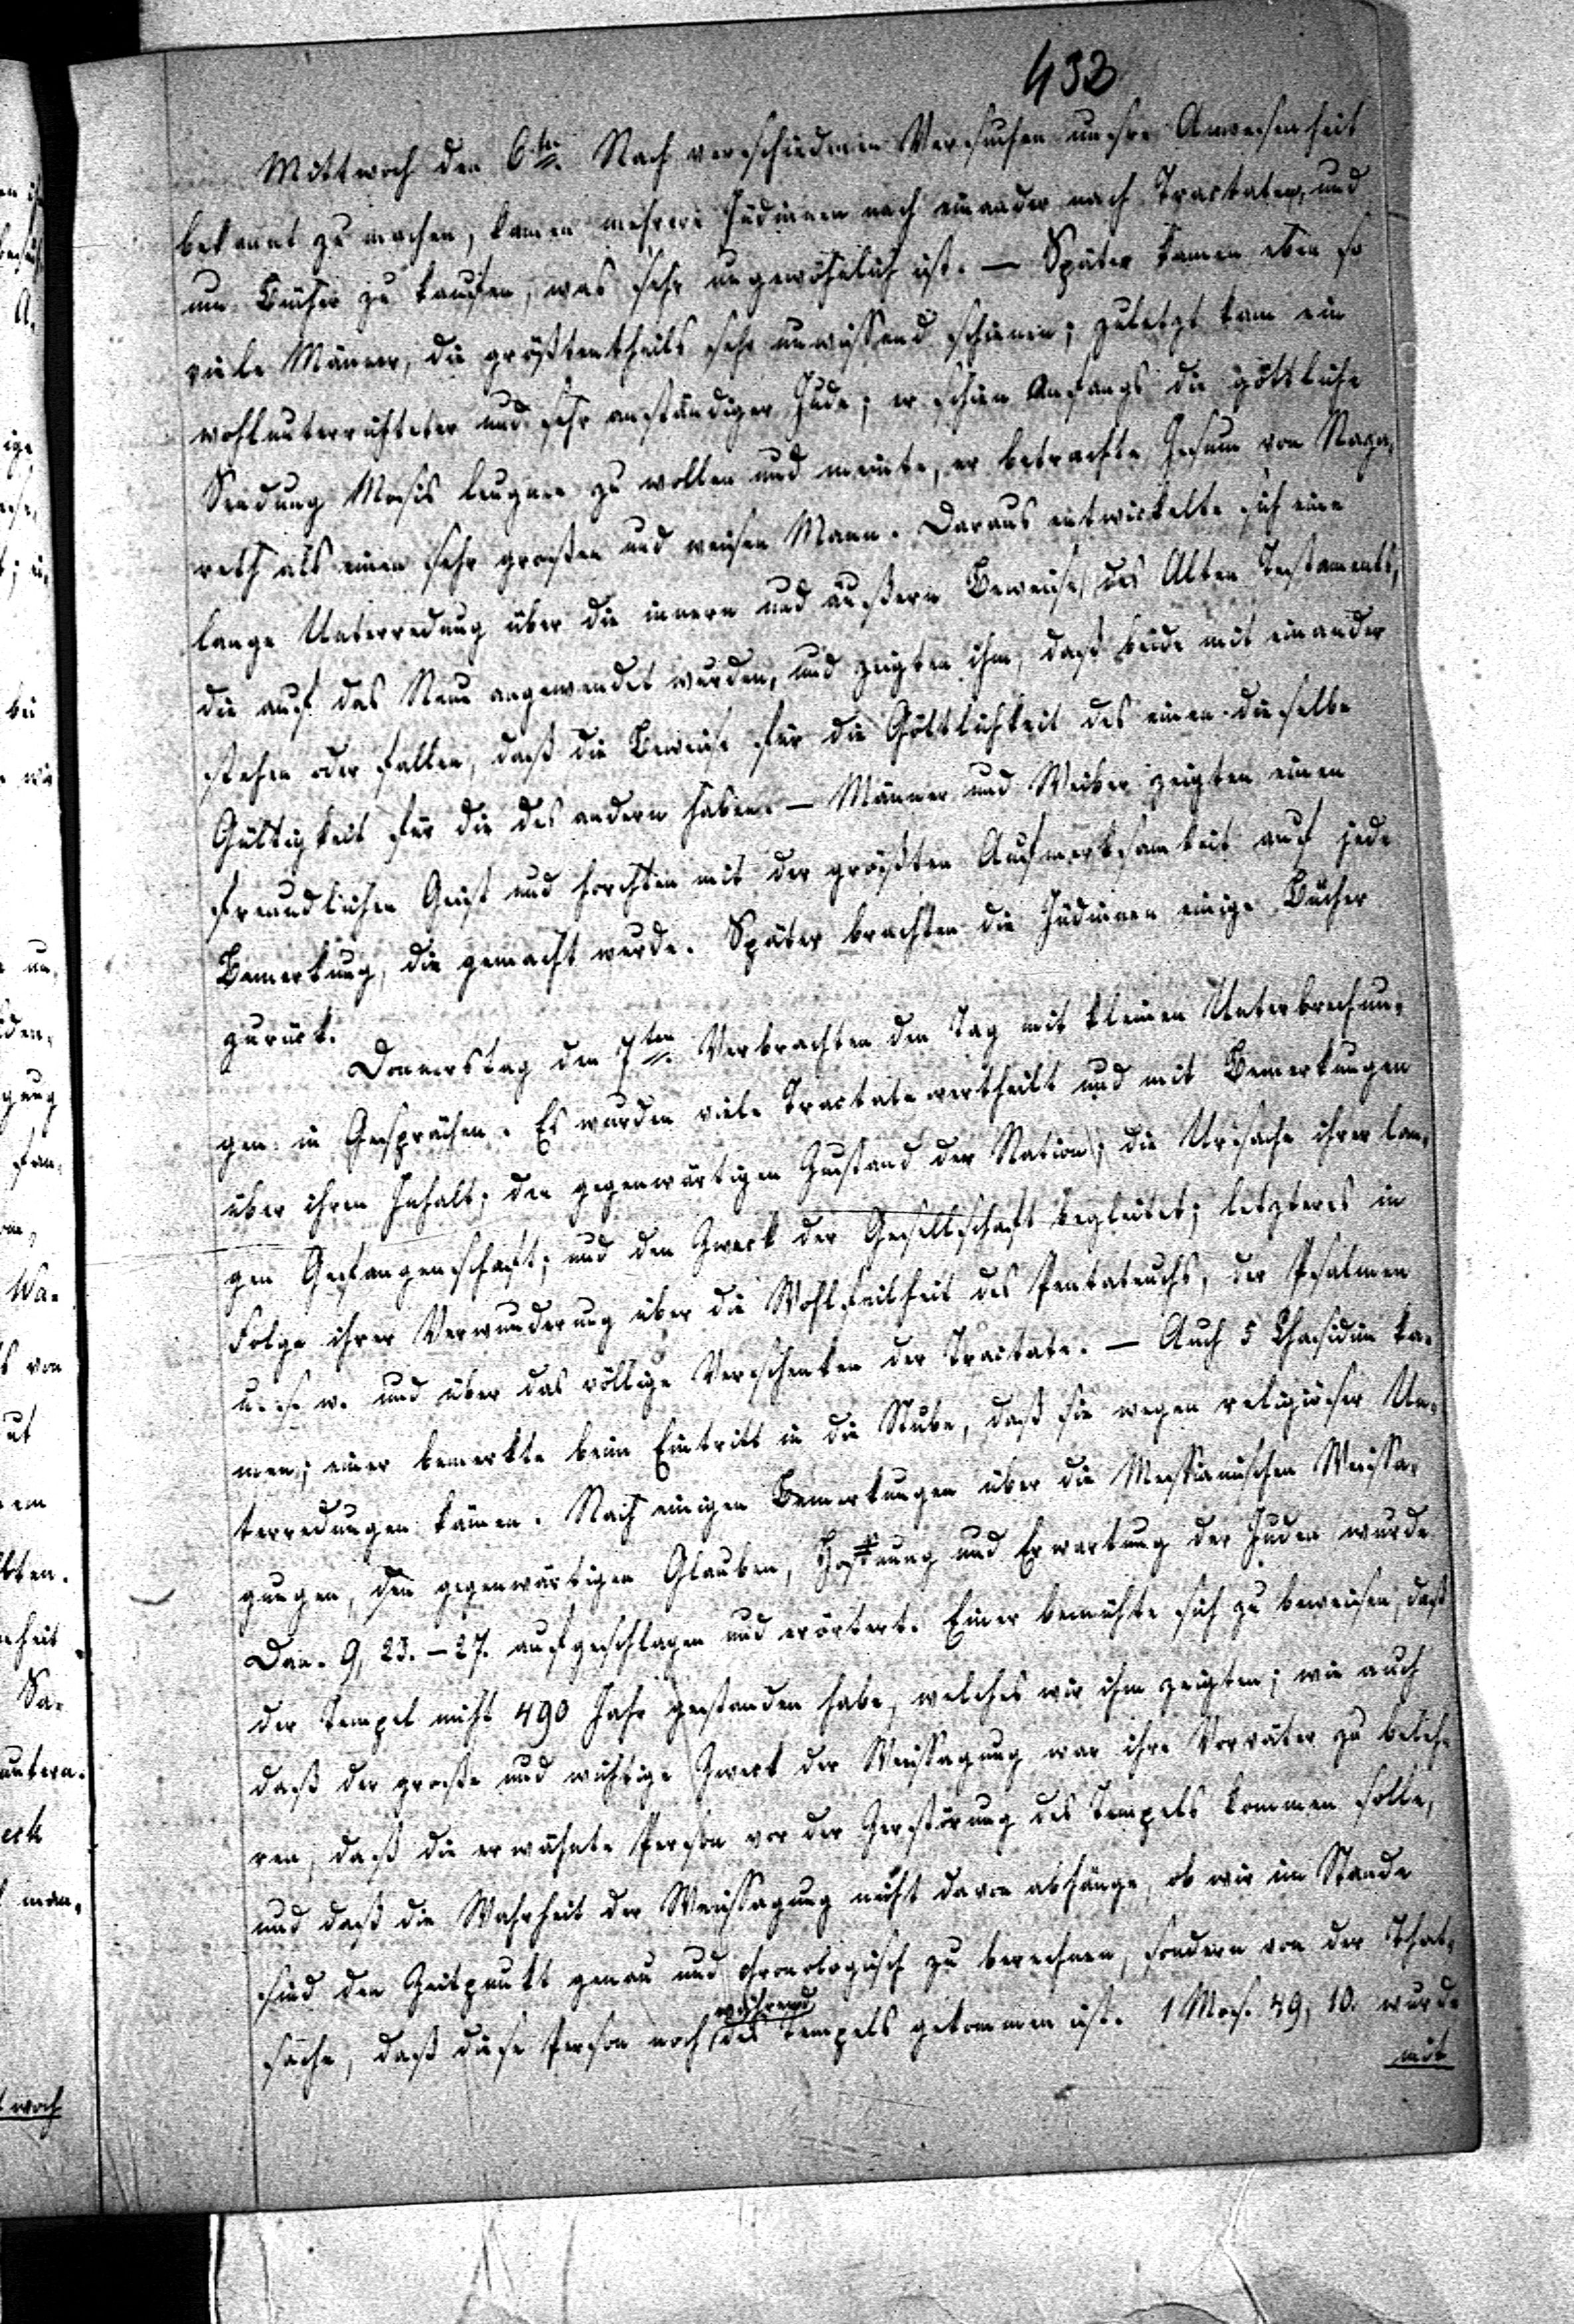 432
Mittwoch den 6.ten Nach verschiedenen Versuchen unsre Anwesenheit
bekannt zu machen, kamen mehrere Jüdinnen nach einander nach Tractaten, und
um Bücher zu kaufen, was sehr ungewöhnlich ist. — Später kamen eben so
viele Männer, die größtentheils sehr unwissend schienen; zuletzt kam ein
wohlunterrichteter und sehr anständiger Jude; er schien Anfangs die göttliche
Sendung Mosis leugnen zu wollen und meinte, er betrachte Jesum von Naza-
reth als einen sehr großen und weisen Mann. Daraus entwickelte sich eine
lange Unterredung über die innern und äußern Beweise des Alten Testaments,
die auf das Neue angewendet wurden, und zeigten ihm, daß beide mit einander
stehen oder fallen, daß die Beweise für die Göttlichkeit des einen dieselbe
Gültigkeit für die des andern haben. — Männer und Weiber zeigten einen
freundlichen Geist und horchten mit der größten Aufmerksamkeit auf jede
Bemerkung, die gemacht wurde. Später brachten die Jüdinnen einige Bücher
zurück.
Donnerstag den 7ten. Verbrachten den Tag mit kleinen Unterbrechun-
gen in Gesprächen. Es wurden viele Tractate vertheilt und mit Bemerkungen
über ihren Inhalt, den gegenwärtigen Zustand der Nation; die Ursache ihrer lan-
gen Gefangenschaft; und den Zweck der Gesellschaft begleitet; letzteres in
Folge ihrer Verwunderung über die Wohlfeilheit des Pentateuchs, der Psalmen
u. s. w. und über das völlige Verschenken der Tractate. — Auch 5 Chasidim ka-
men; einer bemerkte beim Eintritt in die Stube, daß sie wegen religiöser Un-
terredungen kämen. Nach einigen Bemerkungen über die Messianischen Weissa-
gungen, den gegenwärtigen Glauben, Hoffnung und Erwartung der Juden wurde
Dan. 9, 23. – 27. aufgeschlagen und erörtert. Einer bemühte sich zu beweisen, daß
der Tempel nicht 490 Jahr gestanden habe, welches wir ihm zeigten; wie auch
daß der große und wichtige Zweck der Weissagung war ihre Vorväter zu beleh-
ren, daß die erwähnte Person vor der Zerstörung des Tempels kommen solle,
und daß die Wahrheit der Weissagung nicht davon abhänge, ob wir im Stande
sind den Zeitpunkt genau und chronologisch zu berechnen, sondern von der That-
sache, daß diese Person noch während des Tempels gekommen ist. 1 Mos. 49, 10. wurde
mit